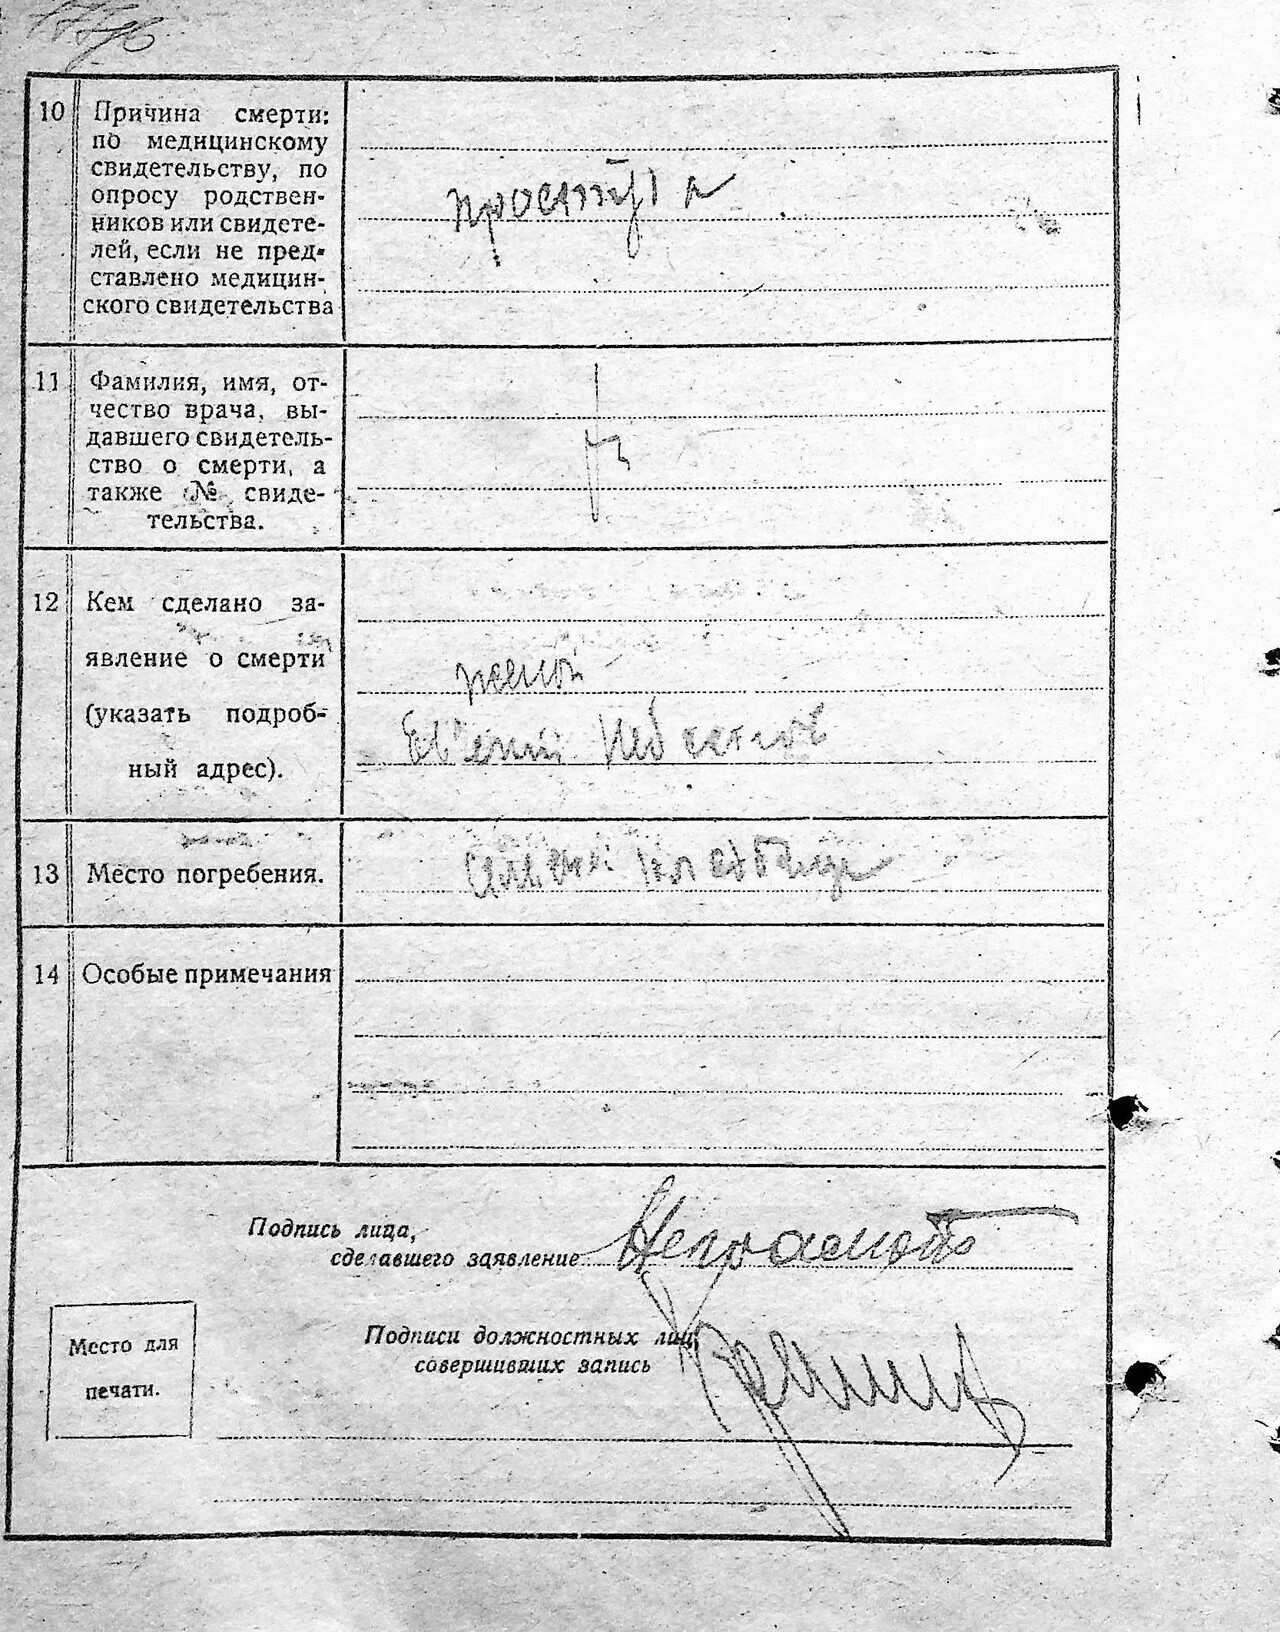 10 Причина смерти:
по медицинскому
свидетельству, по
опросу родствен-
ников или свидете-
лей, если не пред-
ставлено медицин-
ского свидетельства
простуда
11 Фамилия, имя, от-
чество врача, вы-
давшего свидетель-
ство о смерти, а
также № свиде-
тельства.
12 Кем сделано за-
явление о смерти
(указать подроб-
ный адрес).
женой
13 Место погребения.
14 Особые примечания
Подпись лица,
сделавшего заявление
Подписи должностных лиц,
совершивших запись
Место для
печати.